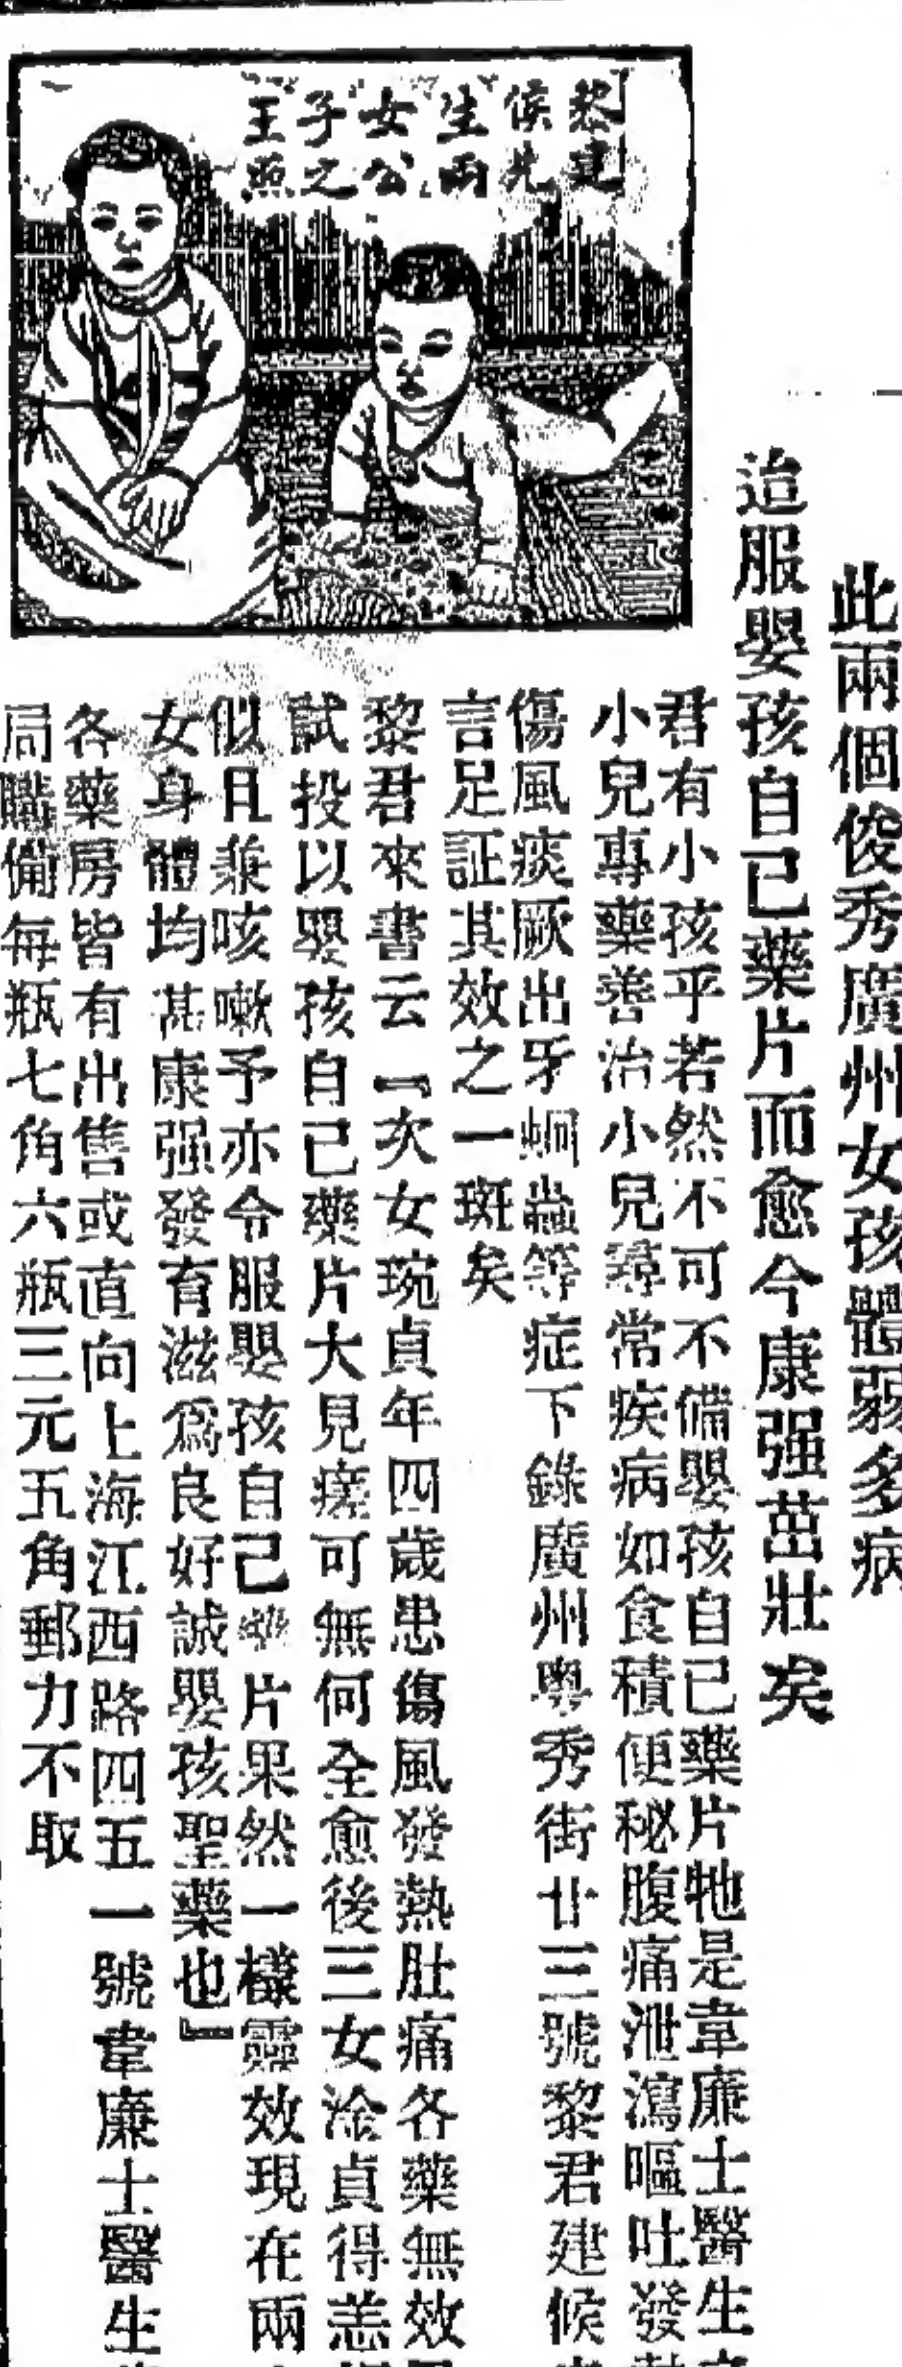 此兩個俊秀廣州女孩體弱多病
迨服嬰孩自己藥片而愈今康强茁壯矣
黎建
侯先
生兩
女公
子之
玉照
君有小孩乎若然不可不備嬰孩自已藥片牠是韋廉士醫生
小兒專藥善治小兒尋常疾病如食積便秘腹痛泄瀉嘔吐發
傷風痰厥出牙蛔蟲等症下錄廣州粤秀街廿三號黎君建候
言足証其效之一斑矣
黎君來書云『次女琬貞年四歲患傷風發熱肚痛各藥無效
試投以嬰孩自已藥片大見瘥可無何全愈後三女淦貞得恙
似且兼咳嗽予亦令服嬰孩自己藥片果然一樣靈效現在兩
女身體均甚康强發育滋爲良好誠嬰孩聖藥也』
各藥房皆有出售或直向上海江西路四五一號韋廉士醫生
局購備每瓶七角六瓶三元五角郵力不取